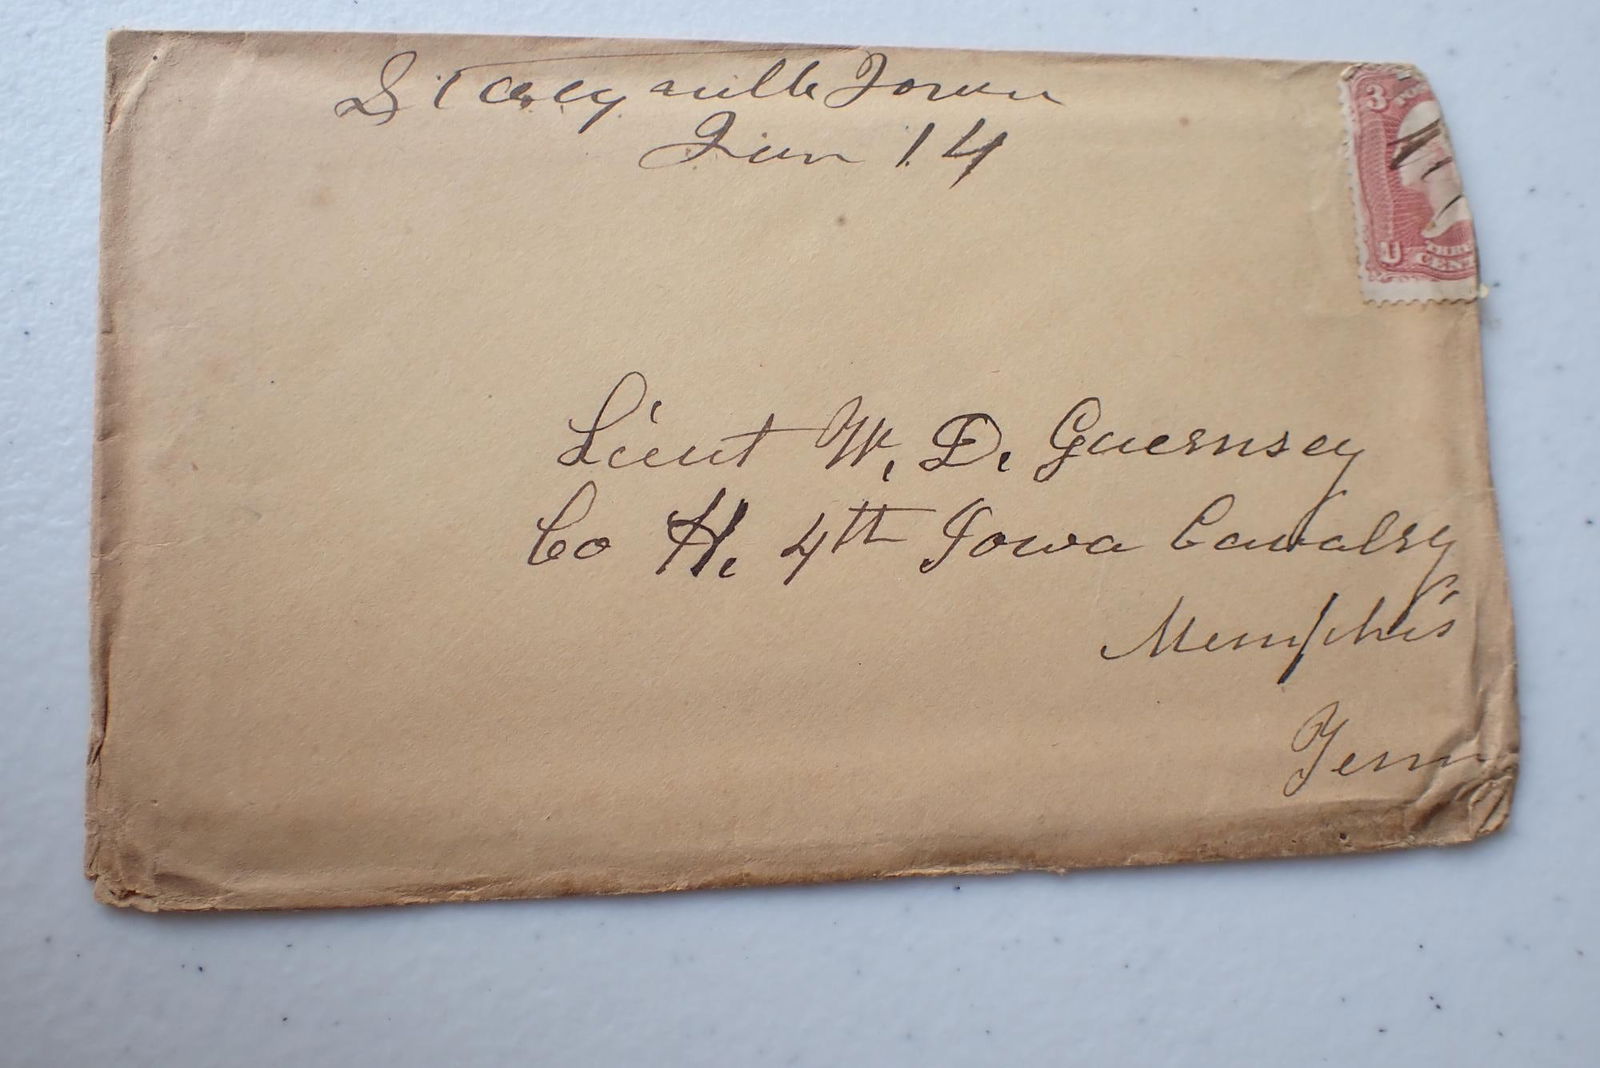 Staceyville Iowa
Jun 14
3 PO
U
THRE
CENT
Lieut W. D. Guernsey
Co H. 4th Iowa Cavalry
Memphis
Tenn